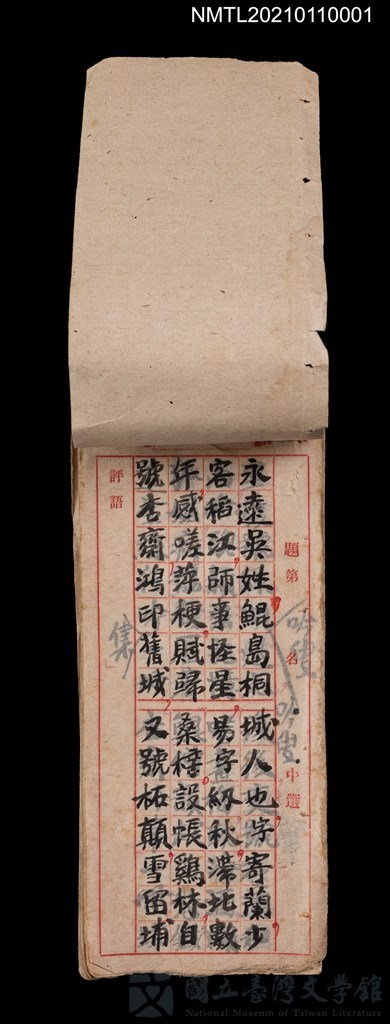 NMTL20210110001
題第 名 中選
永遠吳姓鯤島桐城人也字寄蘭少
客稻江師事怪星易字紉秋滯北數
年感嗟萍梗賦歸桑梓設帳鷄林自
號杏齋鴻印舊城又號柘顛雪留埔
評語
集
國立臺灣文學館
National Museum of Taiwan Literature